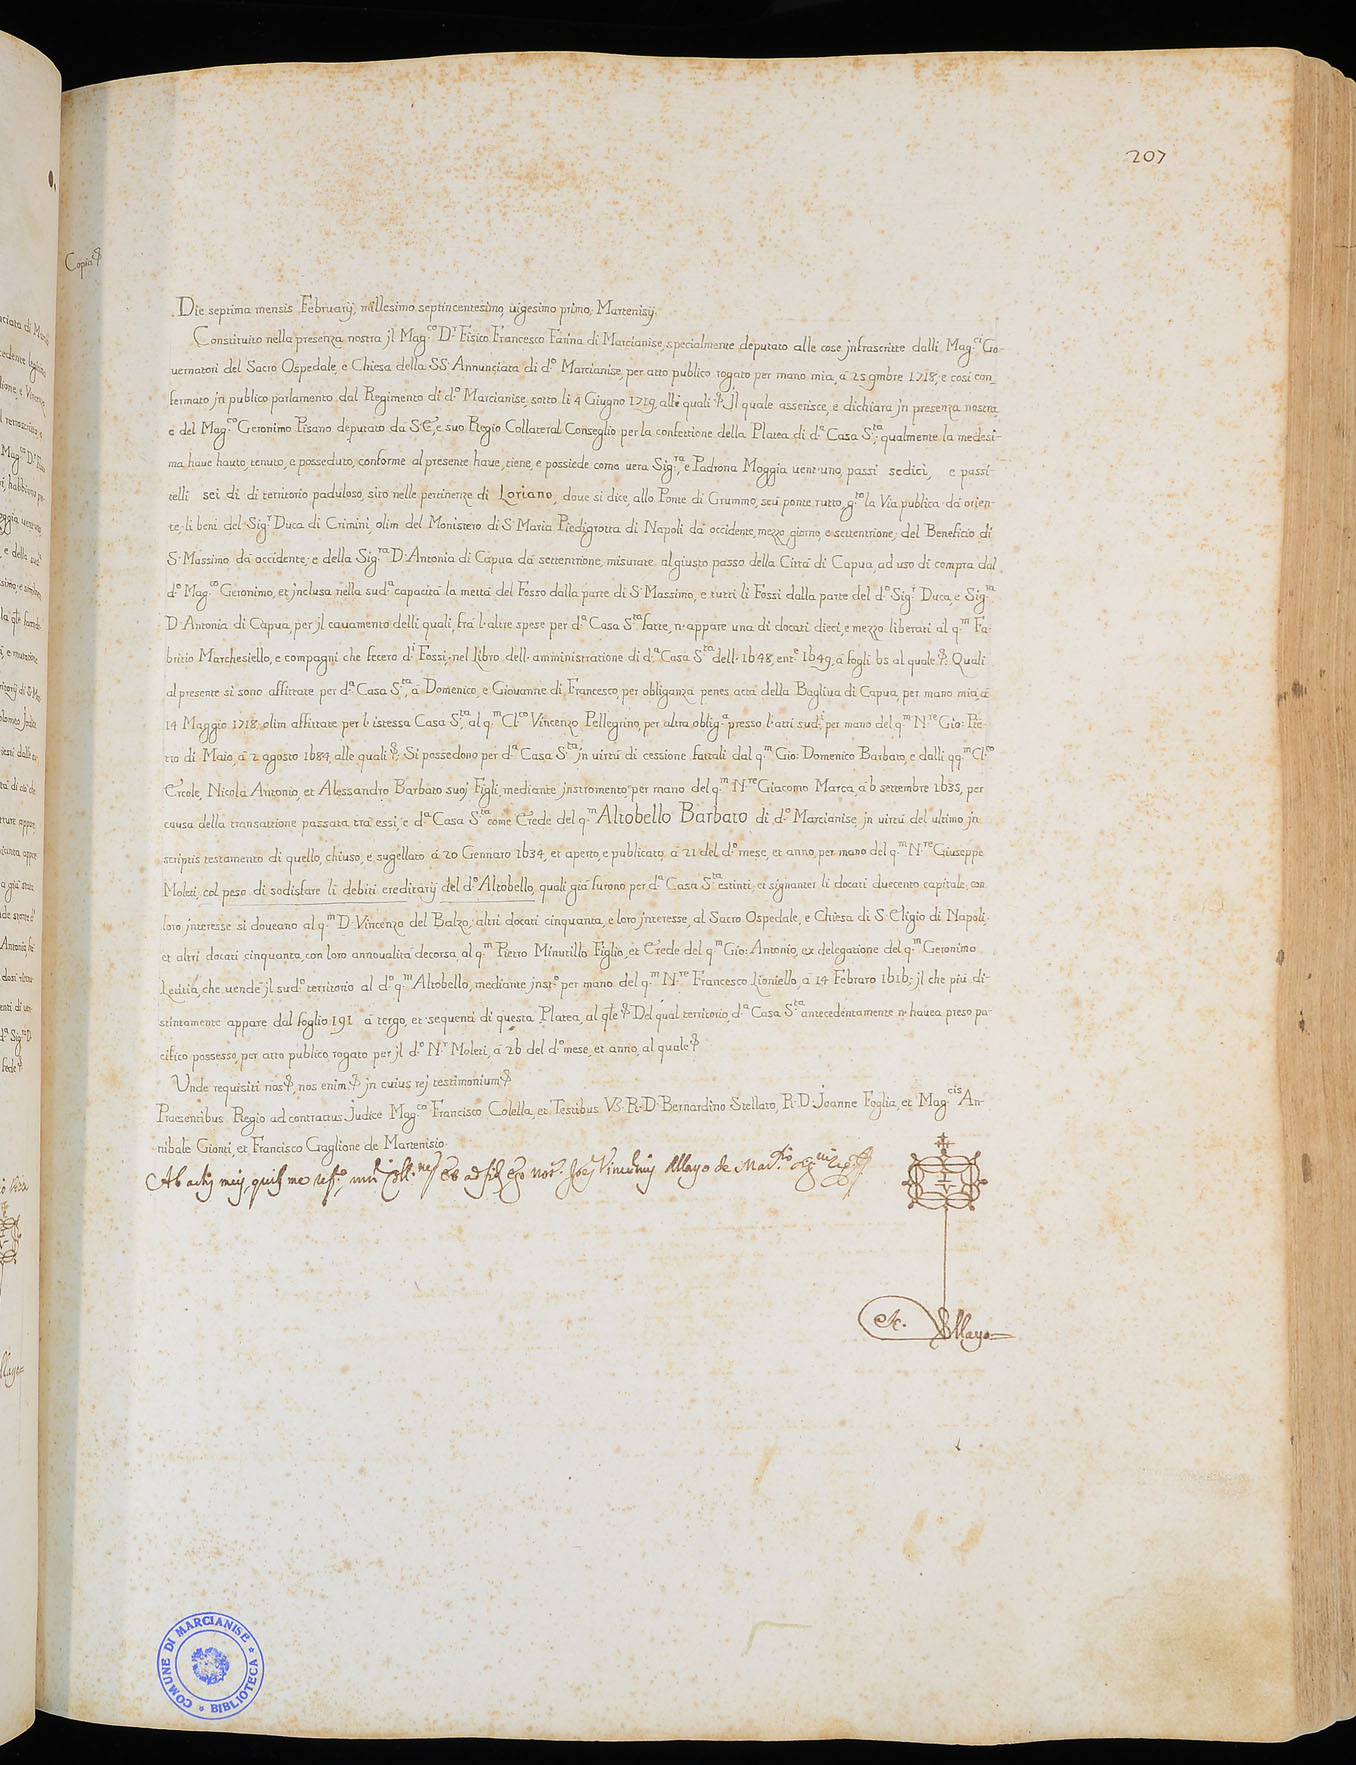 207
Copia &
Die septima mensis Februarij, millesimo septincentesimo, uigesimo primo, Martenisij.
Constituito nella presenza nostra jl Mag.co D.r Fisico Francesco Farina di Marcianise, specialmente deputato alle cose jnfrascritte dalli Mag.ci Go-
uernatori del Sacro Ospedale, e Chiesa della SS. Annunciata di d.o Marcianise, per atto publico rogato per mano mia, à 25 9mbre 1718, e così con-
fermato jn publico parlamento dal Regimento di d.o Marcianise, sotto li 4 Giugno 1719, alli quali &. Jl quale asserisce, e dichiara jn presenza nostra,
e del Mag.co Geronimo Pisano deputato da S. E, e suo Regio Collateral Conseglio per la confettione della Platea di d.a Casa S.ta; qualmente la medesi-
ma haue hauto, tenuto, e posseduto, conforme al presente haue, tiene, e possiede come uera Sig.ra, e Padrona Moggia uent'uno, passi sedici, e passi-
telli sei di di territorio paduloso, sito nelle pertinenze di Loriano, doue si dice, allo Ponte di Grummo, seù ponte rutto, g.to la Via publica dà orien-
te, li beni del Sig.r Duca di Crimini, olim del Monistero di S. Maria Piedigrotta di Napoli dà occidente, mezzo giorno, e settentrione; del Beneficio di
S. Massimo dà occidente; e della Sig.ra D. Antonia di Capua dà settentrione, misurate al giusto passo della Città di Capua, ad uso di compra dal
d.o Mag.co Geronimo, et jnclusa nella sud.a capacità la mettà del Fosso dalla parte di S. Massimo, e tutti li Fossi dalla parte del d.o Sig.r Duca, e Sig.ra
D. Antonia di Capua, per jl cauamento delli quali, frà l'altre spese per d.a Casa S.ta fatte, n'appare una di docati dieci, e mezzo liberati al q.m Fa-
britio Marchesiello, e compagni che fecero d.i Fossi, nel libro dell'amministratione di d.a Casa S.ta dell. 1648, ent.e 1649, à fogli 65 al quale &: Quali
al presente si sono affittate per d.a Casa S.ta, à Domenico, e Giouanne di Francesco, per obliganza penes acta della Bagliua di Capua, per mano mia, à
14 Maggio 1718, olim affittate per l'istessa Casa S.ta, al q.m Cl.co Vincenzo Pellegrino, per altra oblig.a presso l'atti sud.i, per mano del q.m N.re Gio: Pie-
tro di Maio, à 2 agosto 1684, alle quali &; Si possedono per d.a Casa S.ta jn uirtù di cessione fattali dal q.m Gio: Domenico Barbato, e dalli qq.m Cl.co
Ercole, Nicola Antonio, et Alessandro Barbato suoj Figli, mediante jnstromento per mano del q.m N.re Giacomo Marca, à 6 settembre 1635, per
causa della transattione passata trà essi, e d.a Casa S.ta come Erede del q.m Altobello Barbato di d.o Marcianise, jn uirtù del ultimo jn
scriptis testamento di quello, chiuso, e sugellato à 20 Gennaro 1634, et aperto, e publicato à 21 del d.o mese, et anno, per mano del q.m N.re Giuseppe
Moleti, col peso di sodisfare li debiti ereditarij del d.o Altobello, quali già furono per d.a Casa S.ta estinti; et signanter li docati duecento capitale, con
loro jnteresse si doueano al q.m D. Vincenzo del Balzo; altri docati cinquanta, e loro jnteresse, al Sacro Ospedale, e Chiesa di S. Eligio di Napoli,
et altri docati cinquanta, con loro annoualità decorsa, al q.m Pietro Minutillo Figlio, et Erede del q.m Gio: Antonio, ex delegatione del q.m Geronimo
Letitia, che uendè jl sud.o territorio al d.o q.m Altobello, mediante jnst.o per mano del q.m N.re Francesco Lioniello, à 14 Febraro 1616; jl che più di-
stintamente appare dal foglio 191 à tergo, et sequenti di questa Platea, al qle & Del qual territorio, d.a Casa S.ta antecedentemente n'hauea preso pa-
cifico possesso, per atto publico rogato per jl d.o N.r Moleti, à 26 del d.o mese, et anno, al quale &
Unde requisiti nos &, nos enim & jn cuius rej testimonium &
Praesentibus Regio ad contractus Judice Mag.co Francisco Colella, et Testibus VZ. R. D. Bernardino Stellato, R. D. Joanne Foglia, et Mag.cis An-
nibale Gionti, et Francisco Gaglione de Martenisio.
Ab actis meis, quibs me Ego Not.
Mayo
COMUNE DI MARCIANISE * BIBLIOTECA *